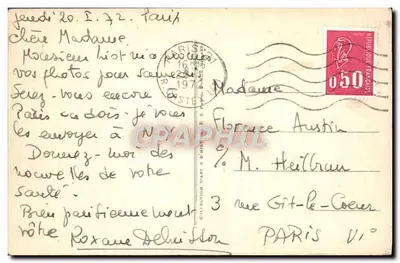 Jeudi 20. I. 72. Paris
Chère Madame
Monsieur
vos photos pour
Serez-vous encore à
Paris ou dois-je vous
les envoyer à N.Y.
Donnez-moi des
nouvelles de votre
santé.
Bien parisiennement
vôtre
Roxane
PARIS
197
REPUBLIQUE FRANÇAISE
0,50
CPAPHIL
Madame
Florence Austin
c/o M. Heilbrun
3 rue Gît-le-Coeur
PARIS VI°